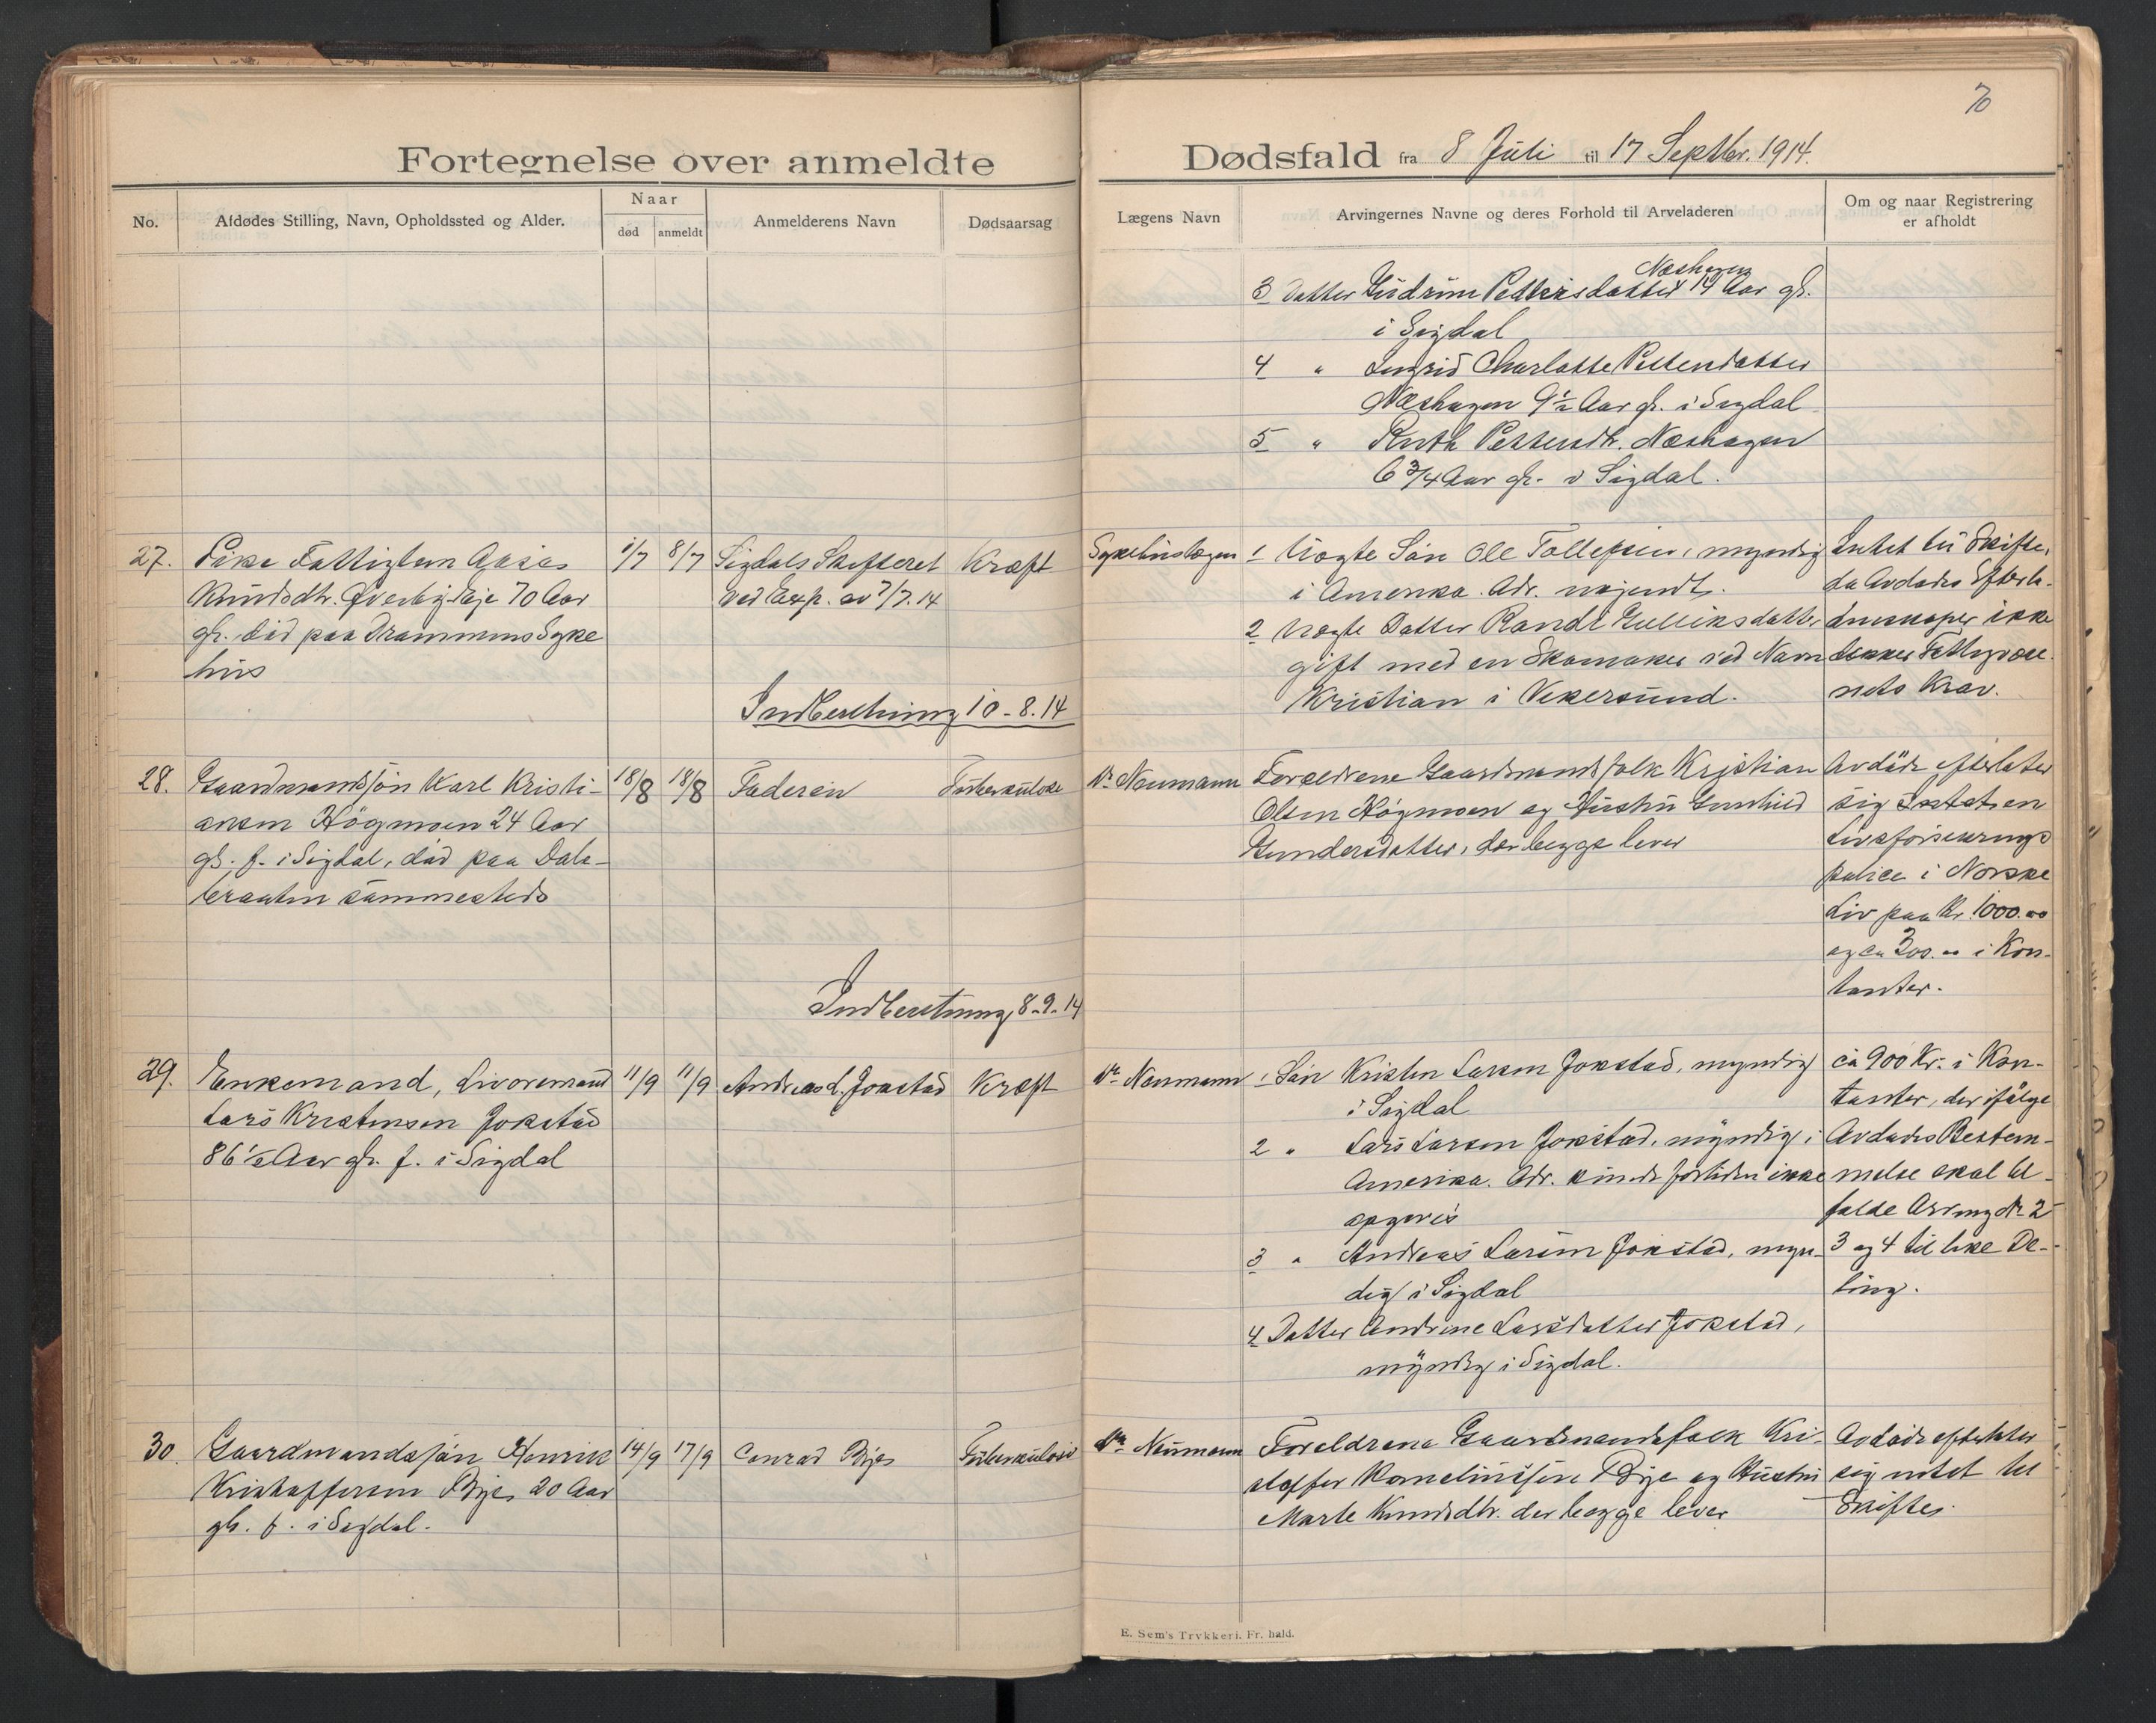 70
Fortegnelse over anmeldte
Dødsfald fra 8 Juli til 17 Septbr. 1914.
No.
Afdødes Stilling, Navn, Opholdssted og Alder.
Naar
død
anmeldt
Anmelderens Navn
Dødsaarsag
Lægens Navn
Arvingernes Navne og deres Forhold til Arveladeren
Om og naar Registrering
er afholdt
Næshagen
3 Datter Gudrun Pettersdatter 14 Aar gl.
i Sigdal
4 " Ingrid Charlotte Pettersdatter
Næshagen 9½ Aar gl. i Sigdal
5 " Ruth Pettersdtr. Næshagen
6 3/4 Aar gl. i Sigdal.
27.
Pike Fattiglem Aase
Knudsdtr. Øverbyeie 70 Aar
gl. død paa Drammens Syke
hus
1/7
8/7
Sigdals Skifteret
ved Exp. av 7/7.14
Kræft
Indberetning 10-8.14
Sykehuslægen
1 Uægte Søn Ole Tollefsen, myndig
i Amerika. Adr. ukjendt.
2 Uægte Datter Randi Gulliksdatter
gift med en Skomaker ved Navn
Kristian i Vikersund.
Intet til Skifte,
da Avdødes Efterla-
denskaper ikke
dekker Fattigvæse-
nets Krav.
28.
Gaardmandssøn Karl Kristi-
ansen Høgmoen 24 Aar
gl. f. i Sigdal, død paa Dale-
braaten sammesteds
18/8
18/8
Faderen
Tuberkulose
Indberetning 8-9-14
Dr Neumann
Forældrene Gaardmandsfolk Kristian
Olsen Høgmoen og Hustru Gunhild
Gundersdatter, der begge lever
Avdøde efterlater
sig en
Livsforsikrings
police i Norske
Liv paa Kr. 1000.00
og ca 300.00 i Kon-
tanter.
29.
Enkemand, Livøremand
Lars Kristensen Jokstad
86½ Aar gl. f. i Sigdal
11/9
11/9
Andreas L. Jokstad
Kræft
Dr Neumann
1 Søn Kristen Larsen Jokstad, myndig
i Sigdal
2 " Lars Larsen Jokstad, myndig i
Amerika. Adr. kunde fortiden ikke
opgives
3 " Andreas Larsen Jokstad, myn-
dig i Sigdal
4 Datter Andrine Larsdatter Jokstad,
myndig i Sigdal.
ca 900 Kr. i Kon-
tanter, der ifølge
Avdødes Bestem-
melse skal til-
falde Arving Nr 2
3 og 4 til like De-
ling.
30.
Gaardmandssøn Henrik
Kristoffersen Bye, 20 Aar
gl. f. i Sigdal.
14/9
17/9
Conrad Bye
Tuberkulose
Dr Neumann
Forældrene Gaardmandsfolk Kri-
stoffer Korneliussen Bye og Hustru
Marte Knudsdtr. der begge lever
Avdøde efterlater
sig intet til
Skifte.
E. Sem's Trykkeri. Fr. hald.